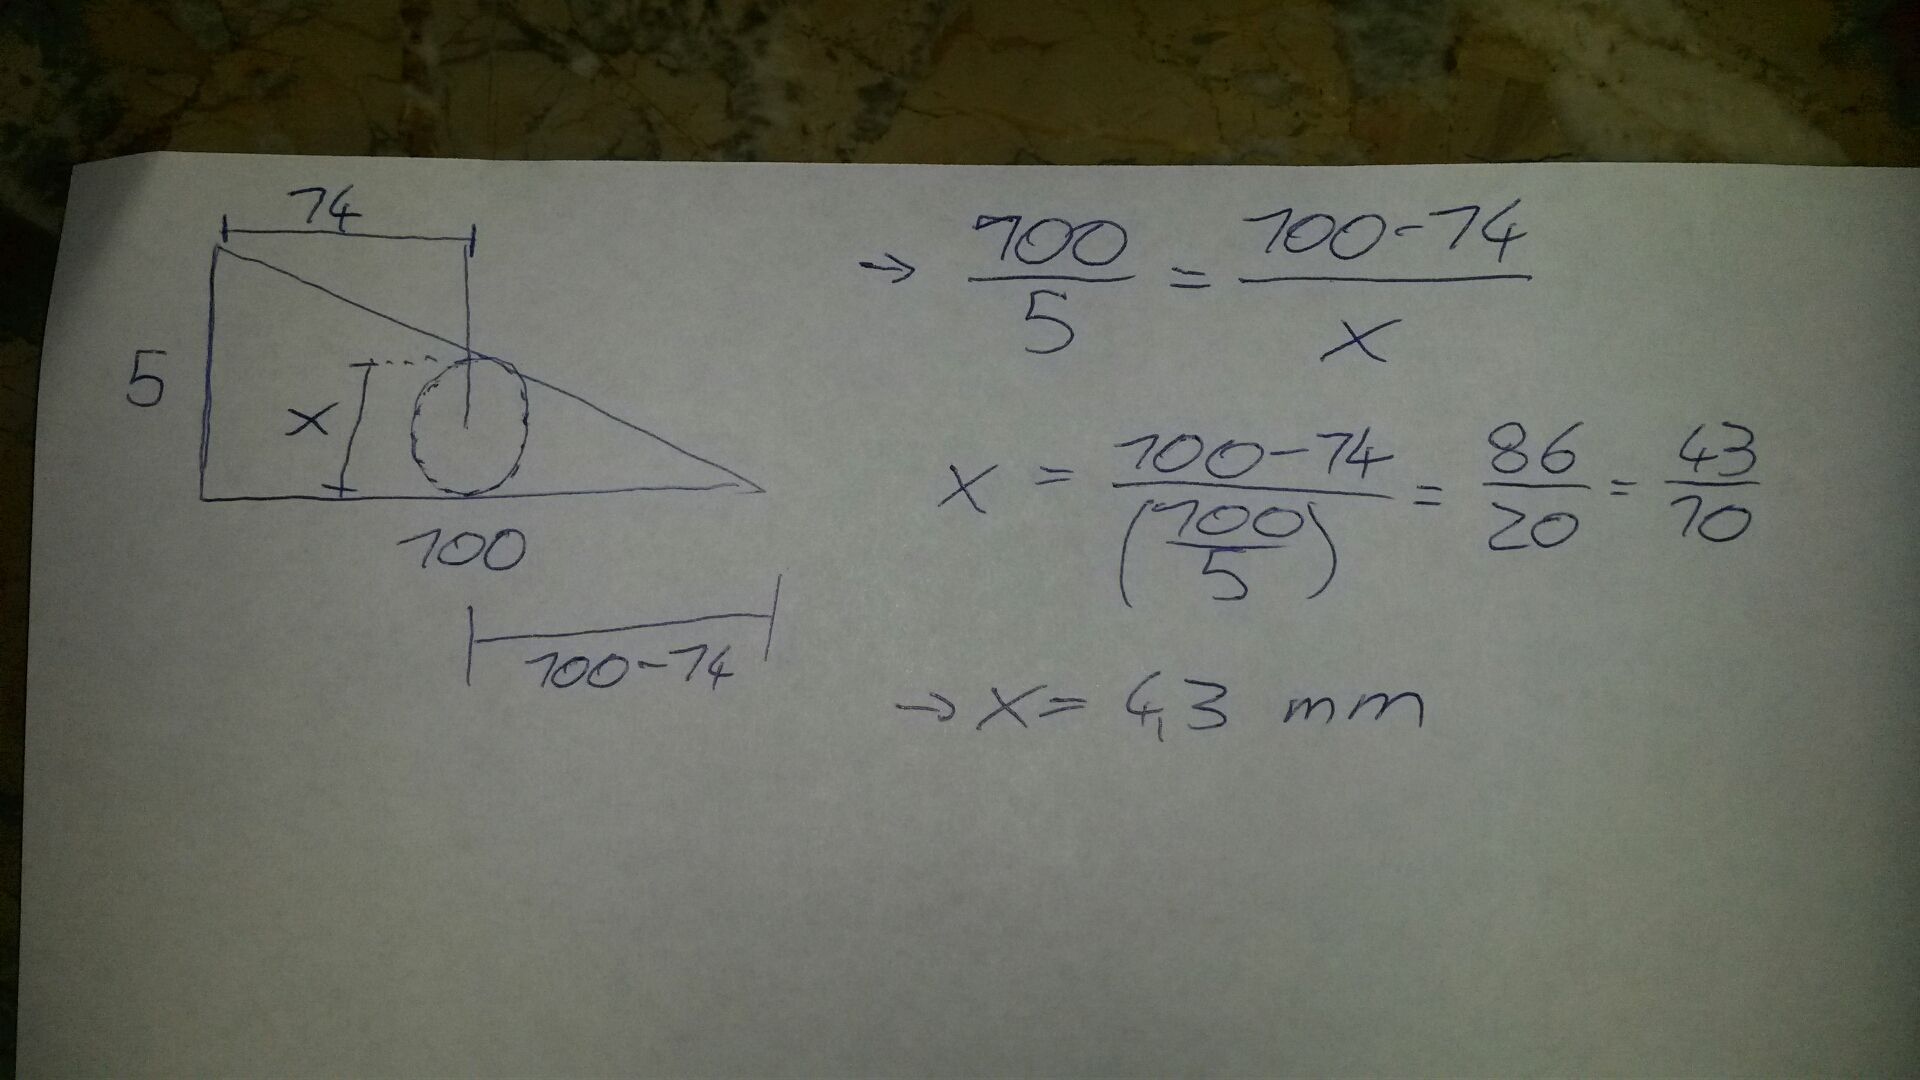 14
5
x
100
100-14
→ 100/5 = 100-14/x
x = 100-14/(100/5) = 86/20 = 43/10
→ x = 4,3 mm